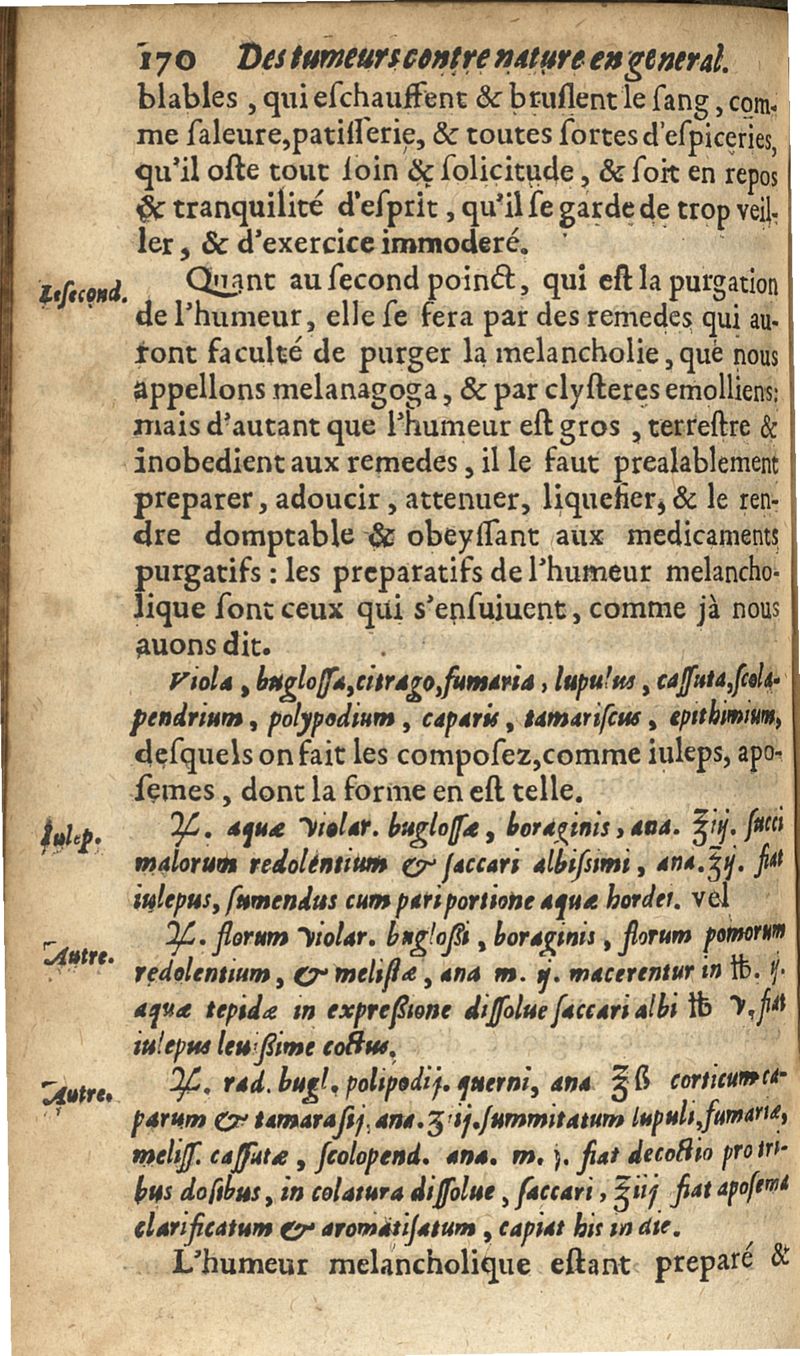 170 Des tumeurs contre nature en general.
blables , qui eſchauffent & bruſlent le ſang , com-
me ſaleure,patiſſerie, & toutes ſortes d'eſpiceries,
qu'il oſte tout ſoin & ſolicitude, & ſoit en repos
& tranquilité d'eſprit , qu'il ſe garde de trop veil-
ler, & d'exercice immoderé.
Le ſecond.
Quant au ſecond poinct, qui eſt la purgation
de l'humeur, elle ſe fera par des remedes qui au-
ront faculté de purger la melancholie, que nous
appellons melanagoga, & par clyſteres emolliens:
mais d'autant que l'humeur eſt gros , terreſtre &
inobedient aux remedes, il le faut prealablement
preparer, adoucir, attenuer, liquefier, & le ren-
dre domptable & obeyſſant aux medicaments
purgatifs : les preparatifs de l'humeur melancho-
lique ſont ceux qui s'enſuiuent, comme jà nous
auons dit.
Viola, bugloſſa, citrago, fumaria, lupulus, caſſuta, ſcola-
pendrium, polypodium, caparis, tamariſcus, epithimium,
deſquels on fait les compoſez,comme iuleps, apo-
ſemes, dont la forme en eſt telle.
Iulep.
♃. aquæ violar. bugloſſæ, boraginis, ana. ℥iij. ſucci
malorum redolentium & ſaccari albiſsimi, ana. ℥ij. fiat
iulepus, ſumendus cum pari portione aquæ hordei. vel
Autre.
♃. florum violar. bugloßi, boraginis, florum pomorum
redolentium, & meliſſæ, ana m. ij. macerentur in ℔. ij.
aquæ tepidæ in expreßione diſſolue ſaccari albi ℔ v. fiat
iulepus leuißime coctus.
Autre.
♃. rad. bugl. polipodij. querni, ana ℥ß corticum ca-
parum & tamaraſij, ana. ʒij. ſummitatum lupuli, fumariæ,
meliſſ. caſſutæ, ſcolopend. ana. m. j. fiat decoctio pro tri-
bus doſibus, in colatura diſſolue, ſaccari, ℥iij fiat apoſema
clarificatum & aromatiſatum, capiat bis in die.
L'humeur melancholique eſtant preparé &